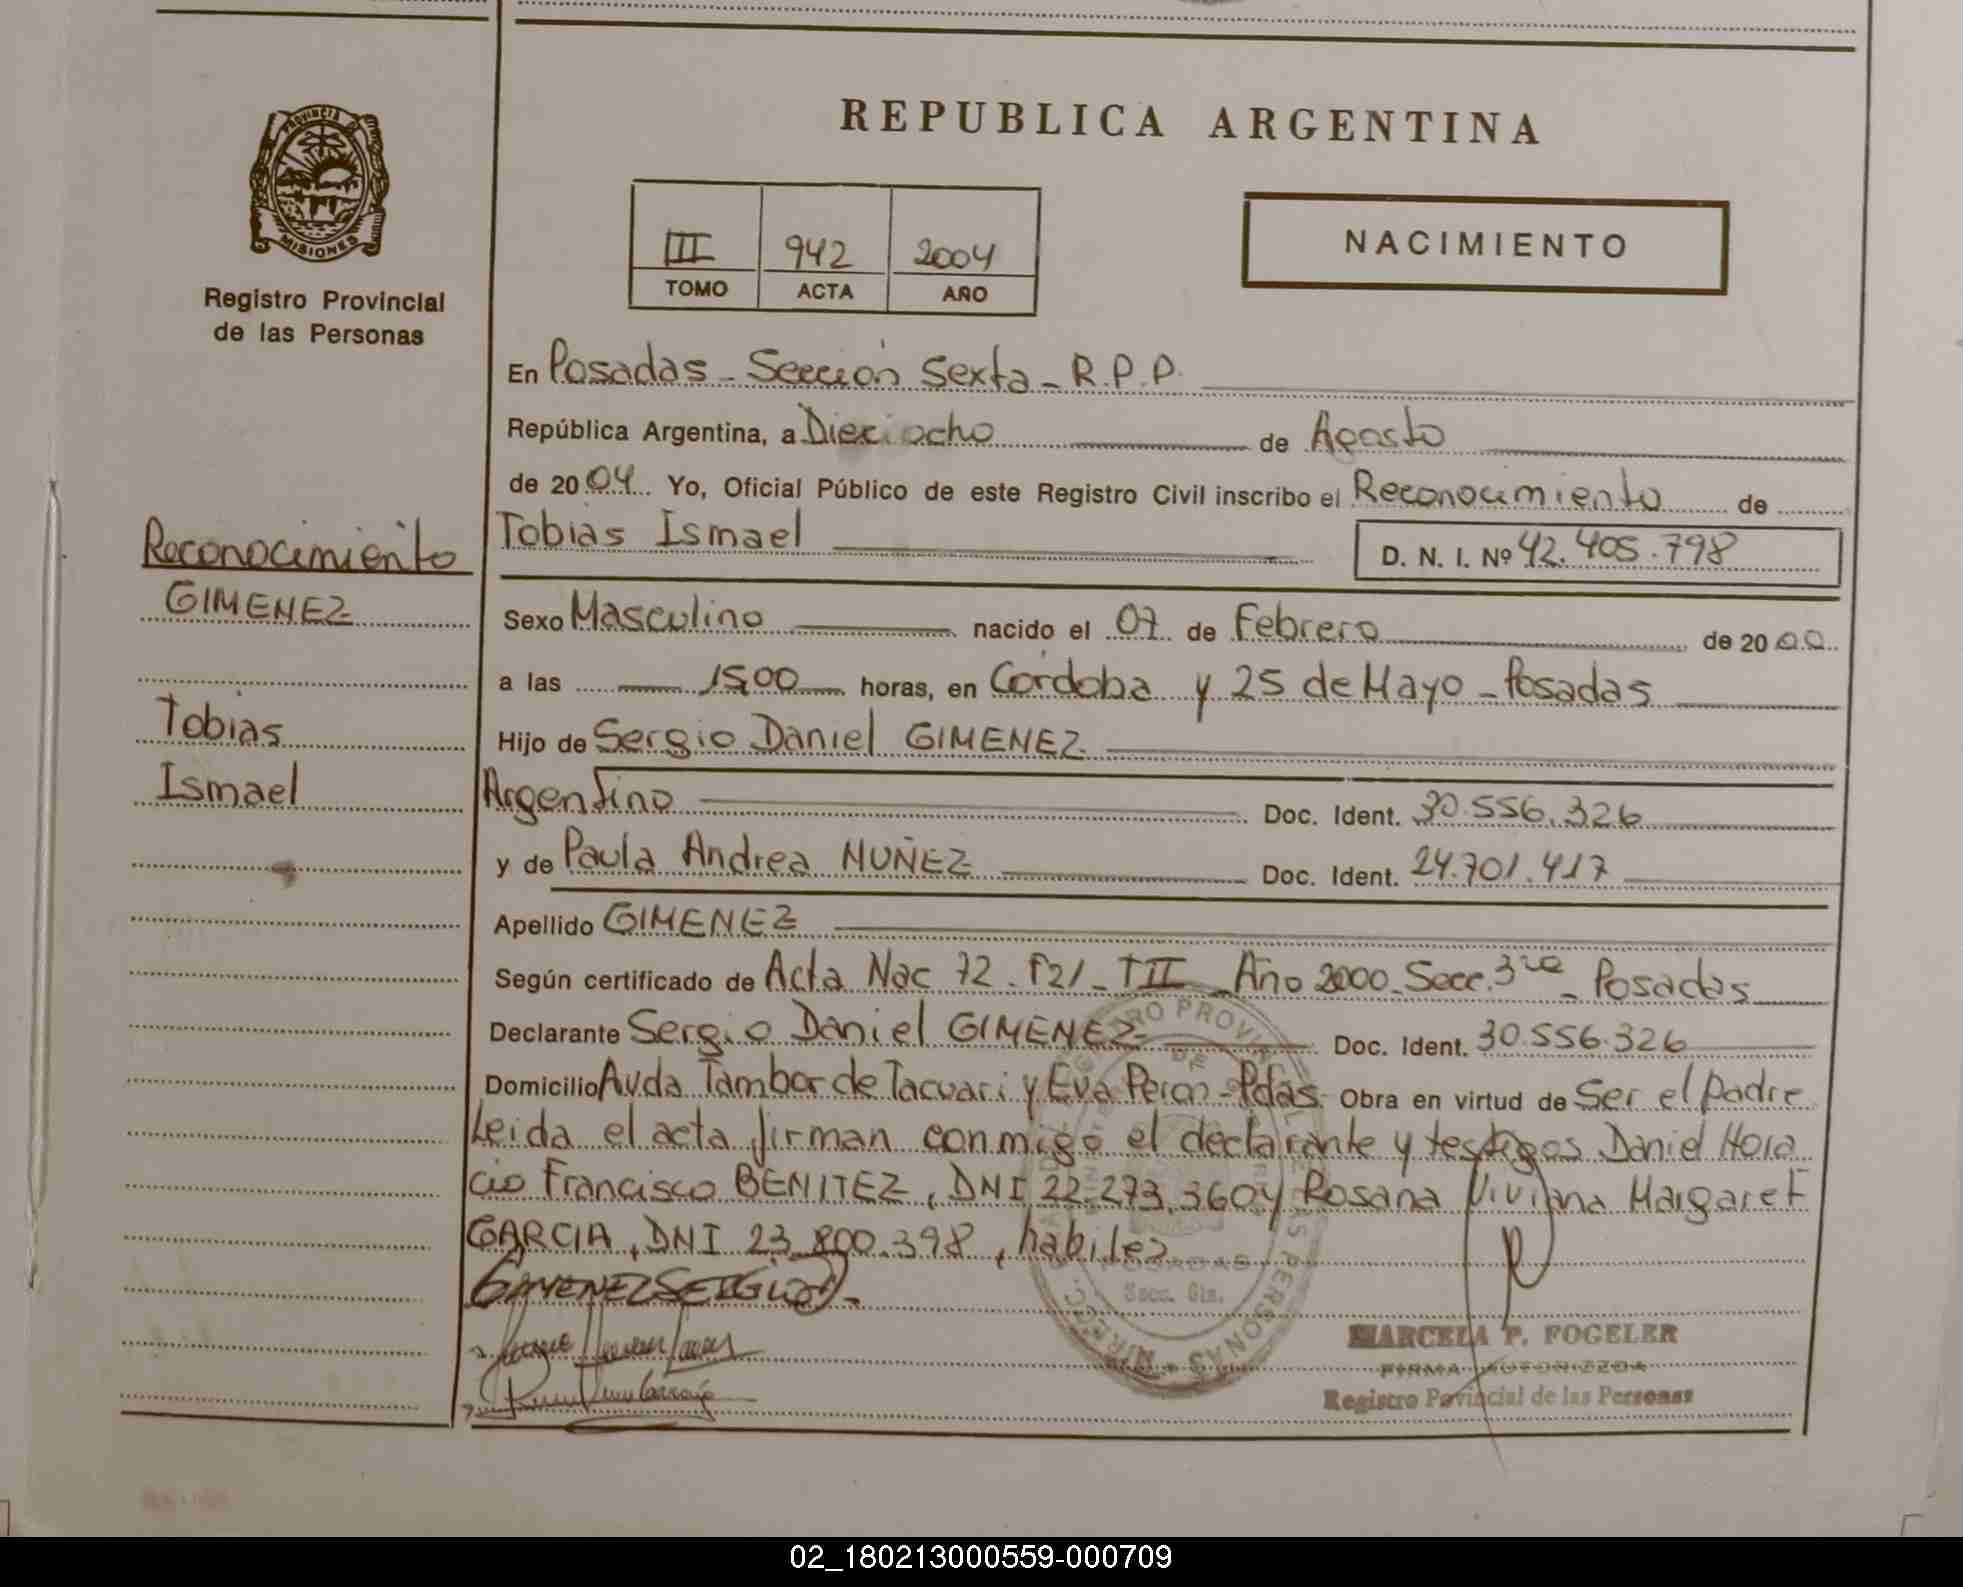 REPUBLICA ARGENTINA
PROVINCIA DE
MISIONES
Registro Provincial
de las Personas
III 942 2004
TOMO ACTA AÑO
NACIMIENTO
En Posadas - Sección Sexta - R.P.P.
República Argentina, a Dieciocho de Agosto
de 2004 Yo, Oficial Público de este Registro Civil inscribo el Reconocimiento de
Tobias Ismael D. N. I. Nº 42.405.798
Reconocimiento
GIMENEZ
Tobias
Ismael
Sexo Masculino nacido el 07 de Febrero de 2000
a las 15,00 horas, en Córdoba y 25 de Mayo - Posadas
Hijo de Sergio Daniel GIMENEZ
Argentino Doc. Ident. 30.556.326
y de Paula Andrea NUÑEZ Doc. Ident. 24.701.417
Apellido GIMENEZ
Según certificado de Acta Nac 72 - F21 - TII - Año 2000 - Secc. 3ra - Posadas
Declarante Sergio Daniel GIMENEZ Doc. Ident. 30.556.326
Domicilio Avda Tambor de Tacuari y Eva Peron - Pdas. Obra en virtud de Ser el padre
Leida el acta firman conmigo el declarante y testigos Daniel Hora
cio Francisco BENITEZ, DNI 22.273.360 y Rosana Viviana Margaret
GARCIA, DNI 23.800.398, habiles
GIMENEZ SERGIO D.
POSADAS
Secc. 6ta.
MARCELA P. FOGELER
FIRMA AUTORIZZDA
Registro Provincial de las Personas
02_180213000559-000709